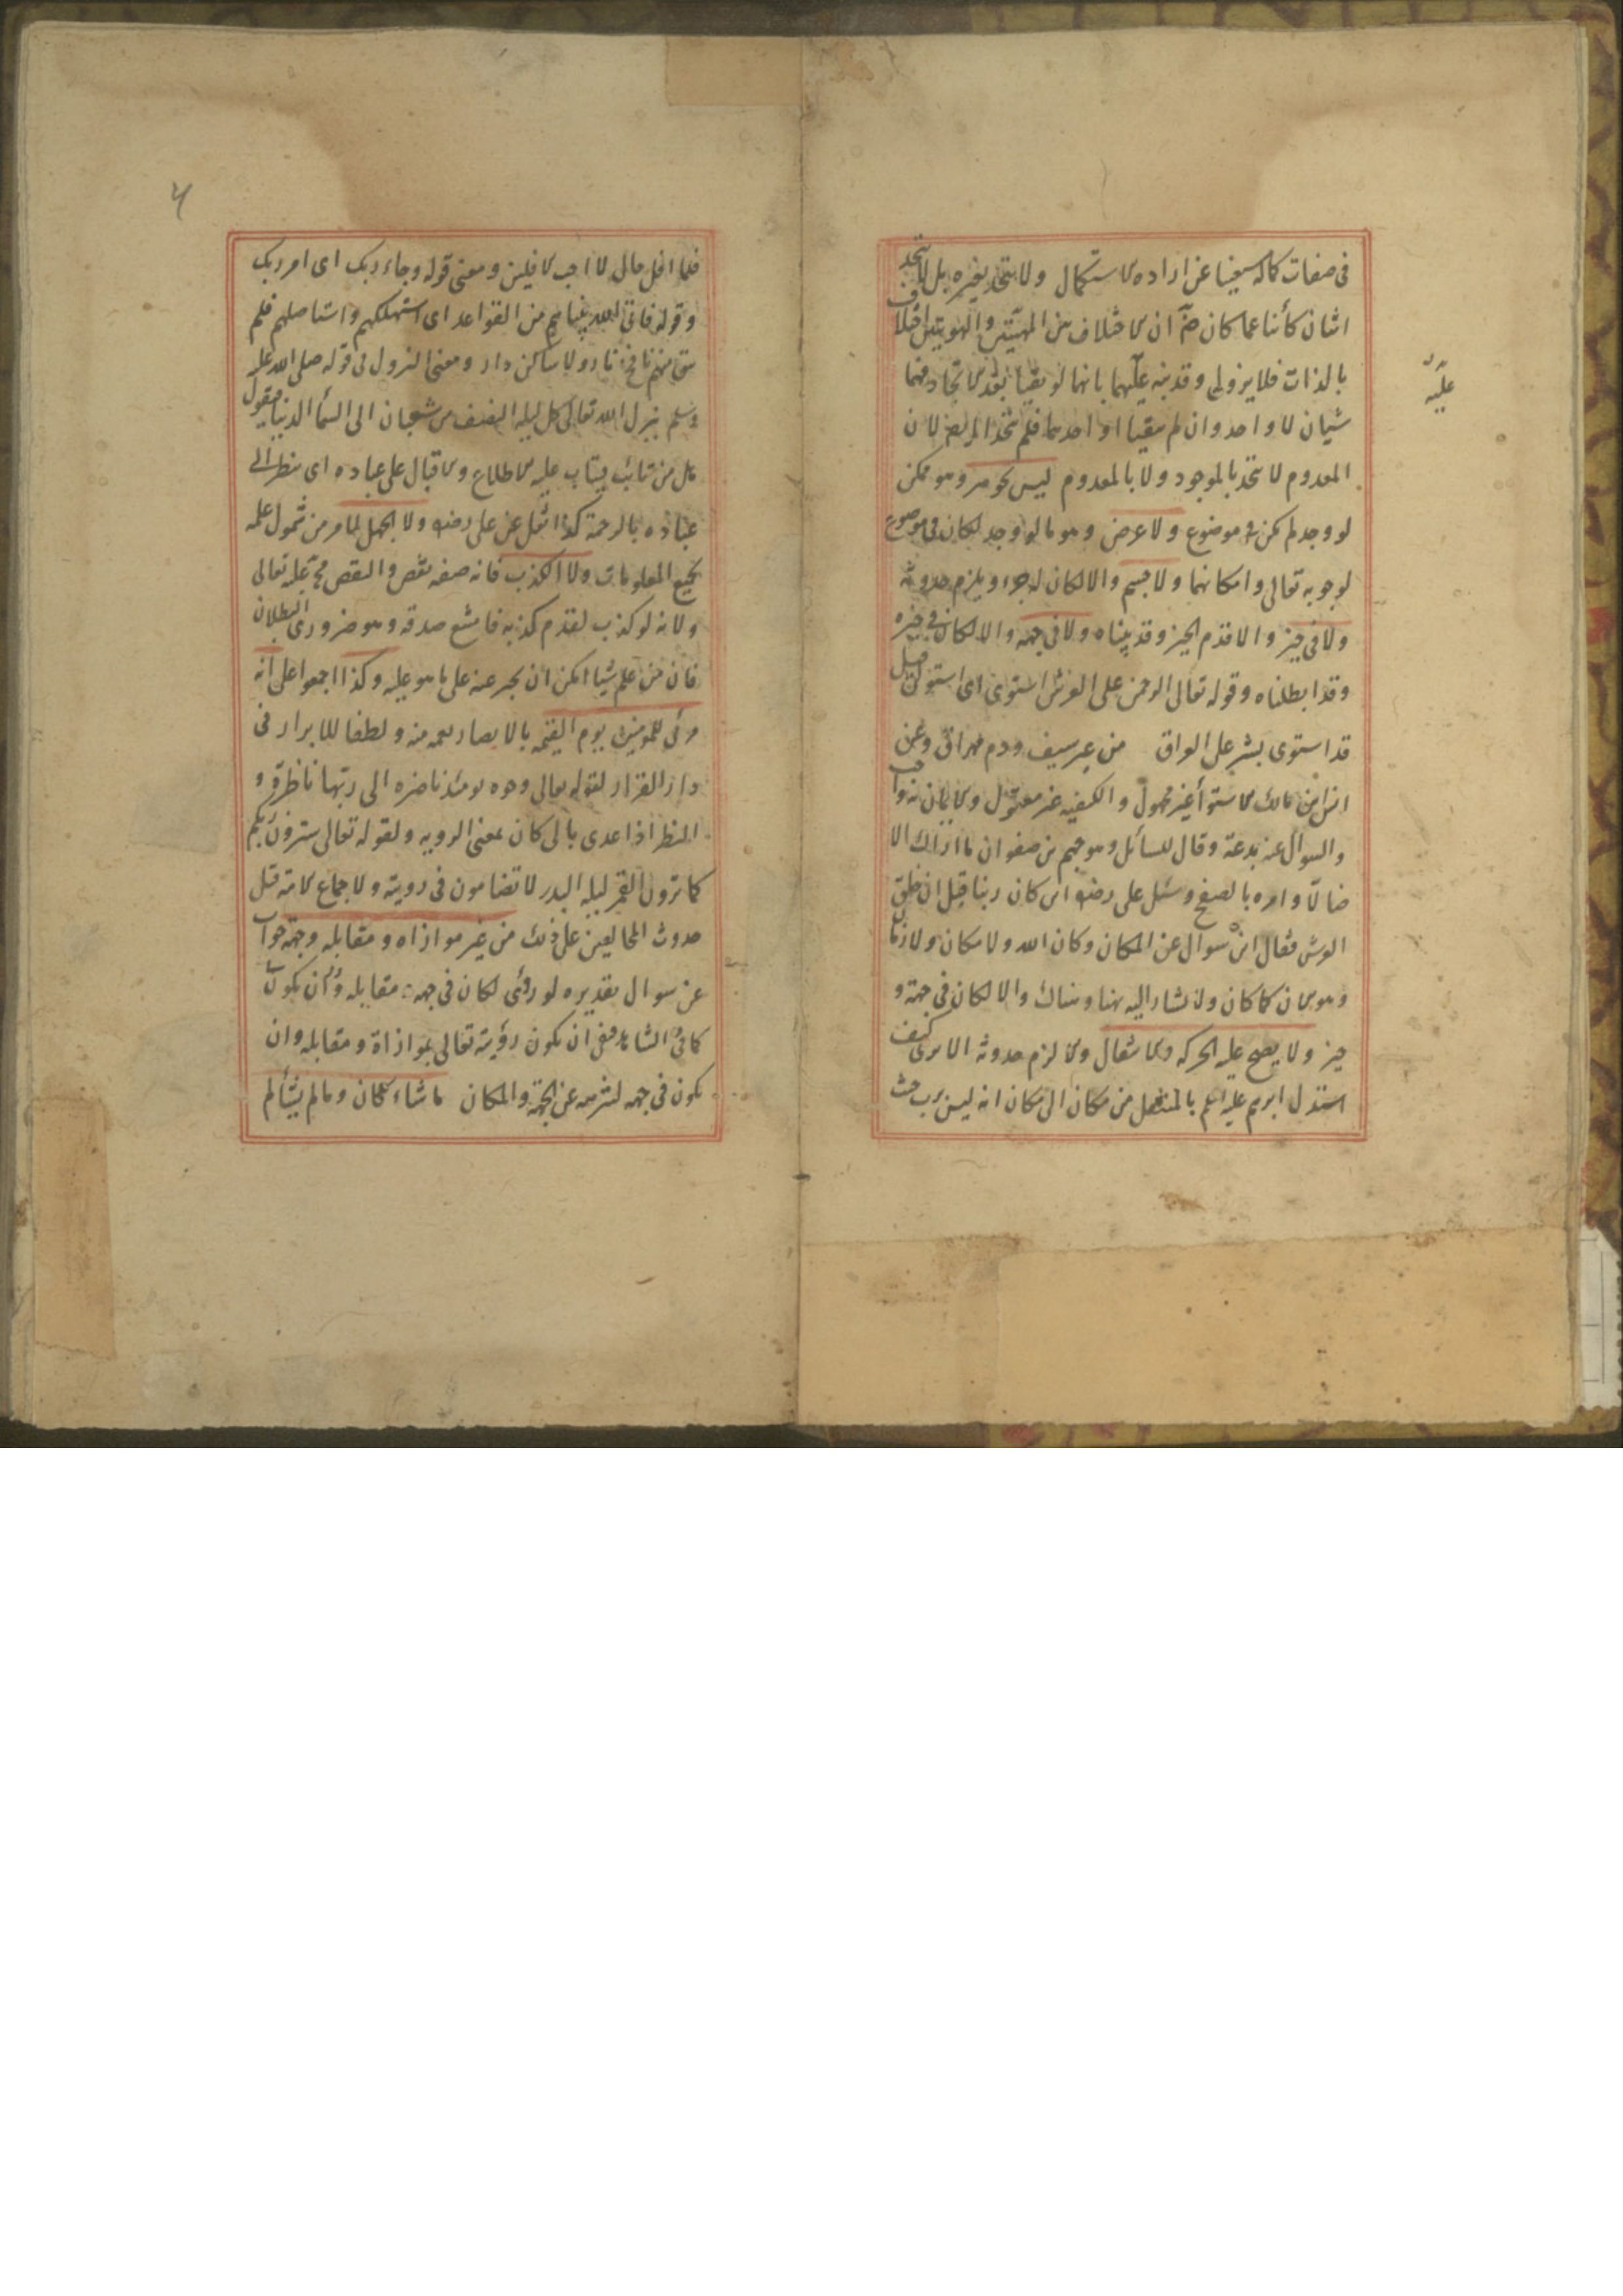 فى صفات كماله مستغنيا عن زيادة الاستكمال ولا يتحد بغيره بل لا يتحد
اثنان كائنا ما كان ضرورة ان الاختلاف بين المهيتين والهويتين اختلاف
بالذات فلا يزول وقد ينبه عليهما بانهما لو بقيا بعد الاتحاد فهما
شيان لا واحد وان لم يبقيا او احدهما فلم يتحدا ايضا لان
المعدوم لا يتحد بالموجود ولا بالمعدوم ليس بجوهر وهو ممكن
لو وجد لم يكن فى موضوع ولا عرض وهو ما لو وجد لكان فى موضوع
لوجوبه تعالى وامكانهما ولا جسم والا لكان له جزء ويلزم حدوثه
ولا فى حيز والا قدم الحيز وقد بيناه ولا فى جهة والا لكان فى حيزه
وقد ابطلناه وقوله تعالى الرحمن على العرش استوى اى استولى
قد استوى بشر على العراق من غير سيف ودم مهراق وعن
انس ابن مالك الاستوأ غير مجهول والكيفيه غير معقول والايمان به واجب
والسوال عنه بدعة وقال للسائل وهو جهم بن صفوان ما اراك الا
ضالا وامره بالصفع وسئل على رضه اين كان ربنا قبل ان خلق
العرش فقال اين سوال عن المكان وكان الله ولا مكان ولا زمان
وهو الان كما كان ولا يشار اليه بهنا وهناك والا لكان فى جهة و
حيز ولا يصح عليه الحركه والانتقال والا لزم حدوثه الا يرى كيف
استدل ابرهيم عليه السلم بالمنتقل من مكان الى مكان انه ليس برب حيث
عليه
٦
فلما افل قال لا احب الافلين ومعنى قوله وجاء ربك اى امر ربك
وقوله فاتى الله بنيانهم من القواعد اى استهلكهم واستاصلهم فلم
يبق منهم نافخ نار ولا ساكن دار ومعنى النزول فى قوله صلى الله عليه
وسلم ينزل الله تعالى كل ليله النصف من شعبان الى السمأ الدنيا فيقول
هل من تائب فيتاب عليه الاطلاع والاقبال على عباده اى ينظر الى
عباده بالرحمة كذا نقل عن على رضه ولا الجهل لما مر من شمول علمه
بجميع المعلومات ولا الكذب فانه صفه نقص والنقص مح عليه تعالى
ولانه لو كذب لقدم كذبه فامتنع صدقه وهو ضرورى البطلان
فان من علم شيا امكن ان يخبر عنه على ما هو عليه وكذا اجمعوا على انه
مرئى للمومنين يوم القيمه بالابصار نعمه منه ولطفا للابرار فى
دار القرار لقوله تعالى وجوه يومئذ ناضره الى ربها ناظرة و
النظر اذا عدى بالى كان بمعنى الرويه ولقوله تعالى سترون ربكم
كما ترون القمر ليلة البدر لا تضامون فى رويته ولاجماع الامة قبل
حدوث المخالفين على ذلك من غير موازاه ومقابله وجهة جواب
عن سوال تقديره لو رئى لكان فى جهه مقابله وان يكون
كما فى الشاهد فنفى ان يكون رؤيته تعالى بموازاة ومقابله وان
يكون فى جهه لتنزهه عن الجهة والمكان ما شاء كان وما لم يشأ لم